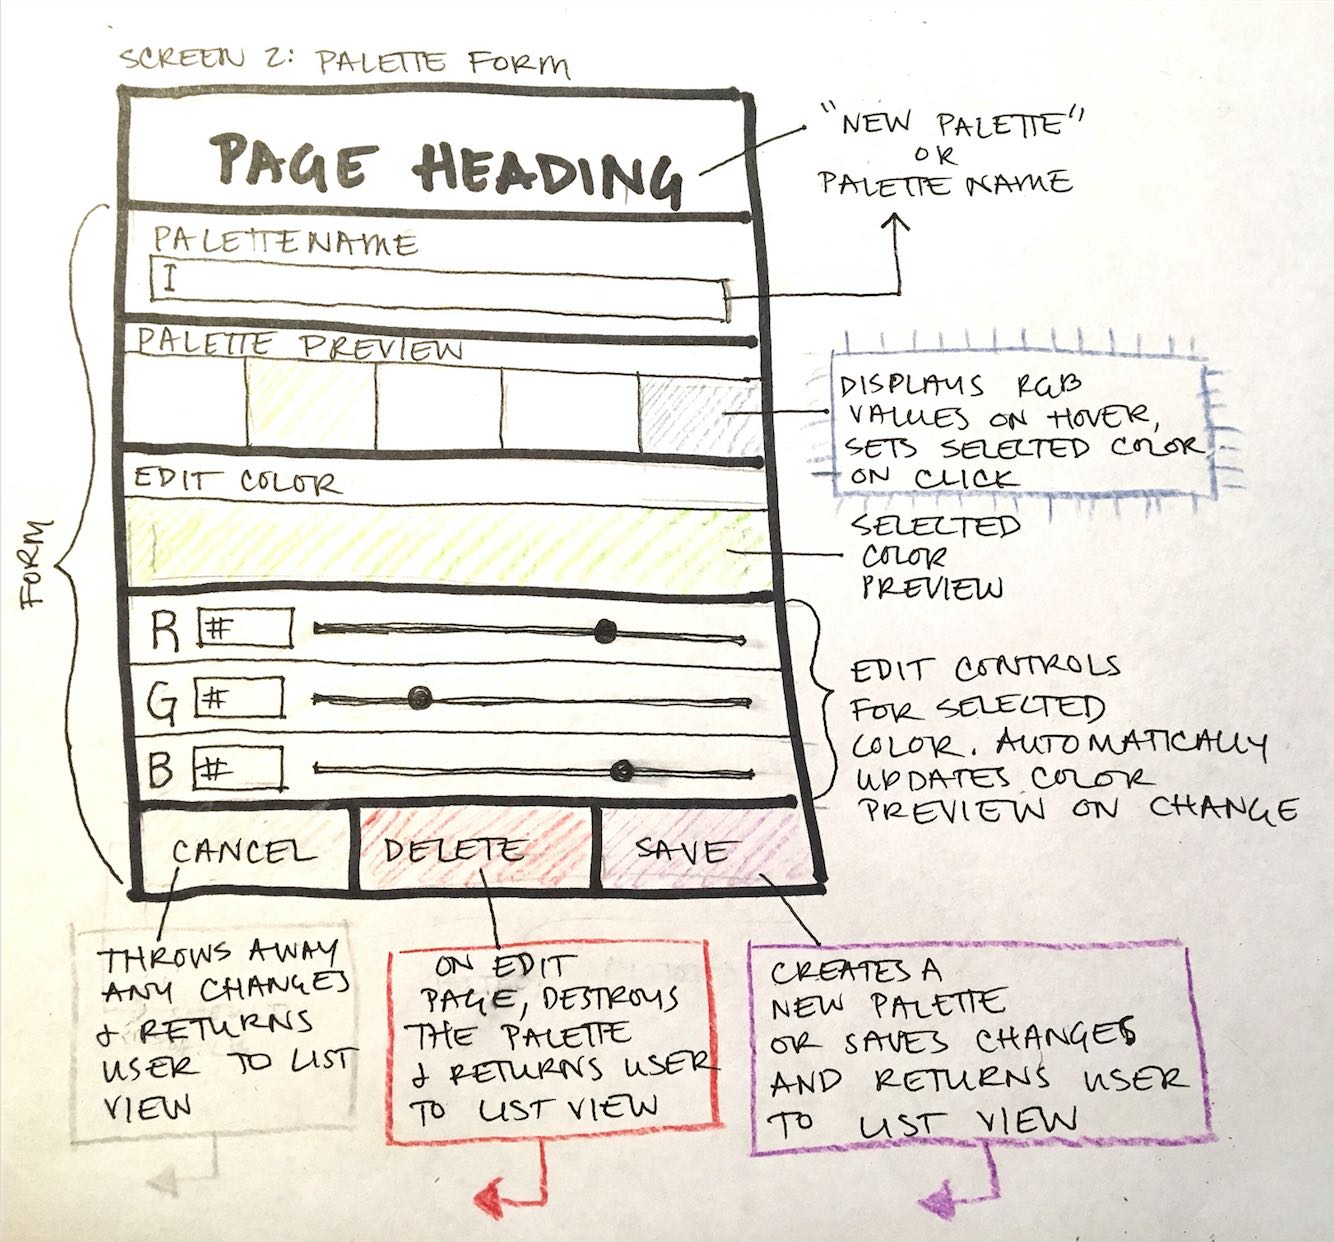 SCREEN 2: PALETTE FORM
PAGE HEADING
"NEW PALETTE"
OR
PALETTE NAME
PALETTE NAME
I
PALETTE PREVIEW
DISPLAYS RGB
VALUES ON HOVER,
SETS SELECTED COLOR
ON CLICK
EDIT COLOR
SELECTED
COLOR
PREVIEW
FORM
R #
G #
B #
EDIT CONTROLS
FOR SELECTED
COLOR. AUTOMATICALLY
UPDATES COLOR
PREVIEW ON CHANGE
CANCEL
DELETE
SAVE
THROWS AWAY
ANY CHANGES
& RETURNS
USER TO LIST
VIEW
ON EDIT
PAGE, DESTROYS
THE PALETTE
& RETURNS USER
TO LIST VIEW
CREATES A
NEW PALETTE
OR SAVES CHANGES
AND RETURNS USER
TO LIST VIEW